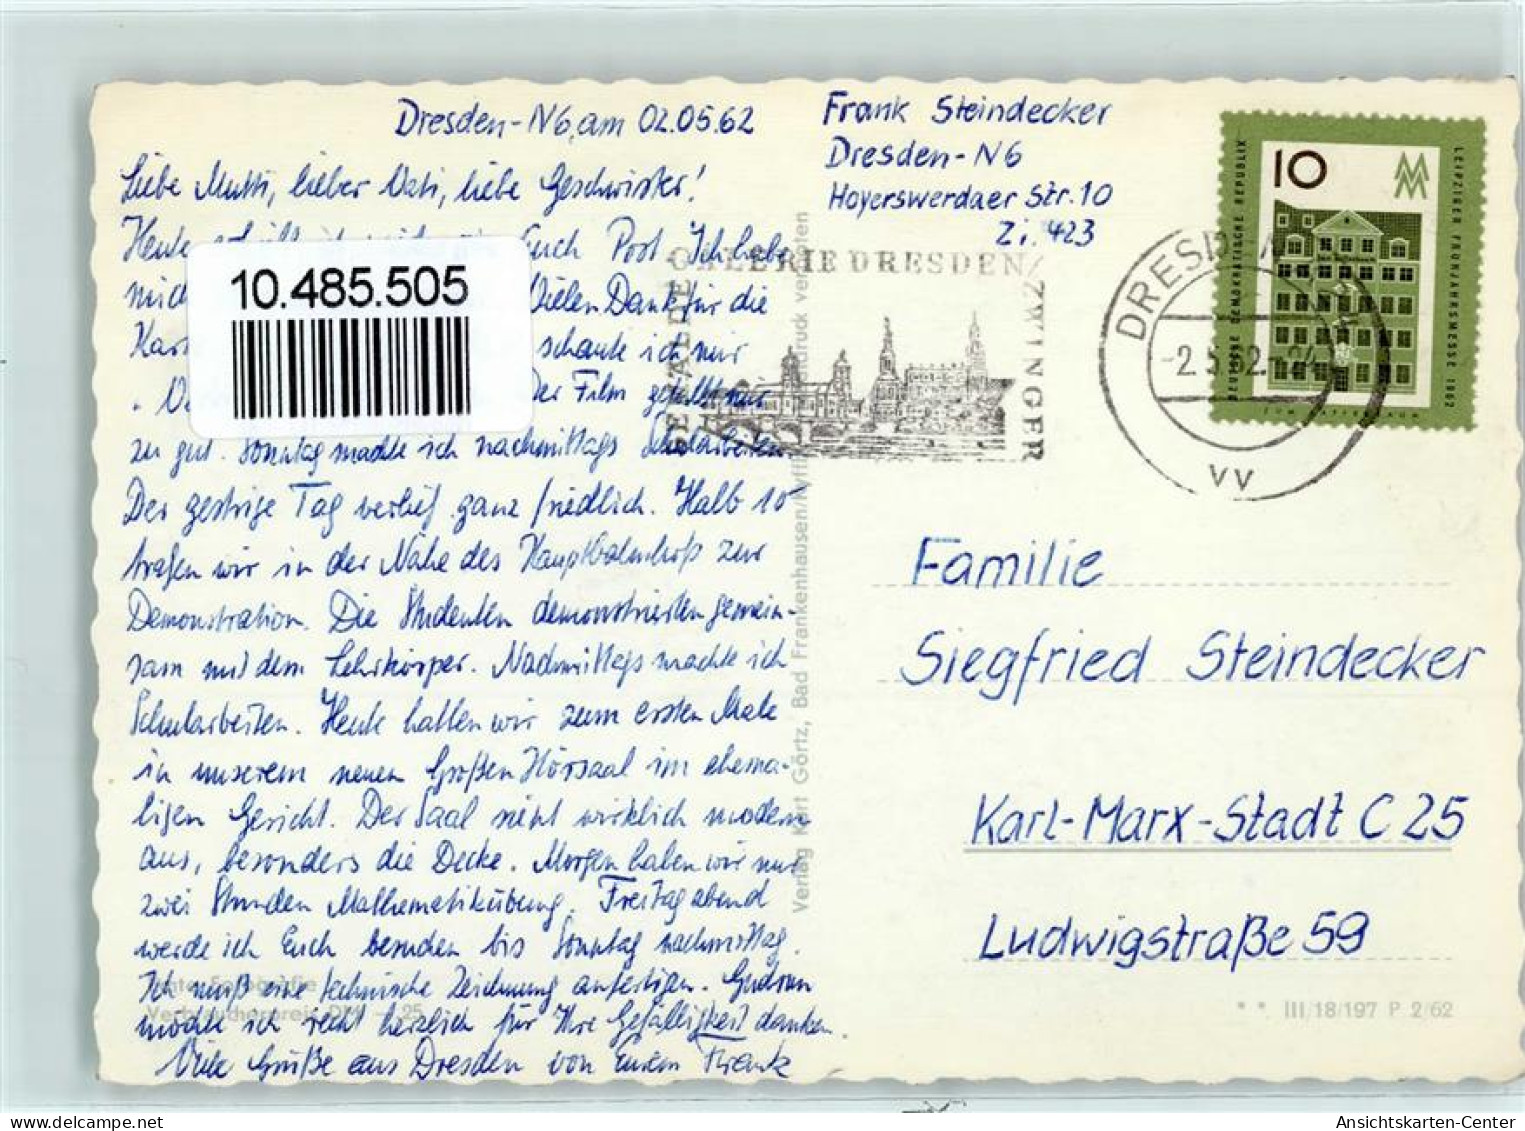 Dresden-N6, am 02.05.62
Liebe Mutti, lieber Vati, liebe Geschwister!
Heute Euch Post. Ich habe
mich Vielen Dank für die
Kar schaute ich mir
Der Film gefällt mir
zu gut. Sonntag machte ich nachmittags Schularbeiten.
Der gestrige Tag verlief ganz friedlich. Halb 10
trafen wir in der Nähe des Hauptbahnhofs zur
Demonstration. Die Studenten demonstrierten gemein-
sam mit dem Lehrkörper. Nachmittags machte ich
Schularbeiten. Heute hatten wir zum ersten Male
in unserem neuen Großen Hörsaal im ehema-
ligen Gericht. Der Saal sieht wirklich modern
aus, besonders die Decke. Morgen haben wir nur
zwei Stunden Mathematikübung. Freitag abend
werde ich Euch besuchen bis Sonntag nachmittag.
Ich muß eine technische Zeichnung anfertigen. Gudrun
möchte ich recht herzlich für Ihre Gefälligkeit danken.
Viele Grüße aus Dresden von Eurem Frank
10.485.505
Frank Steindecker
Dresden-N6
Hoyerswerdaer Str. 10
Zi. 423
GEMÄLDE
GALERIE DRESDEN
ZWINGER
DRESDEN
-2.5.62.-24
vv
10
MM
DEUTSCHE DEMOKRATISCHE REPUBLIK
LEIPZIGER FRÜHJAHRSMESSE 1962
ZUM KAFFEEBAUM
Familie
Siegfried Steindecker
Karl-Marx-Stadt C 25
Ludwigstraße 59
Verlag Kurt Görtz, Bad Frankenhausen/Kyffh. Nachdruck verboten
Echte Fotografie
Verbraucherpreis DM -,25
* * III/18/197 P 2/62
Ansichtskarten-Center